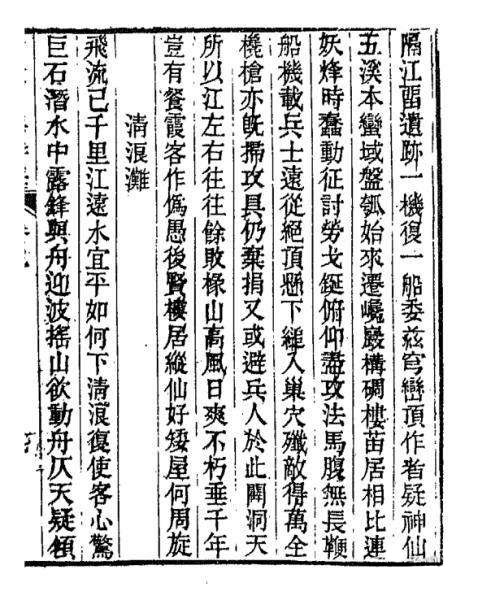 隔江畱遺跡一機復一船委茲穹巒頂作者疑神仙
五溪本蠻域盤瓠始來遷巉巖構碉樓苗居相比連
妖烽時蠢動征討勞戈鋋俯仰諡攻法馬腹無長鞭
船機載兵士遠從絕頂懸下縋入巢穴殲敵得萬全
欃槍亦既掃攻具仍棄捐又或避兵人於此闢洞天
所以江左右往往餘敗椽山高風日爽不朽垂千年
豈有餐霞客作僞愚後賢樓居縱仙好矮屋何周旋
清浪灘
飛流已千里江遠水宜平如何下清浪復使客心驚
巨石潛水中露鋒與舟迎波搖山欲動舟仄天疑傾